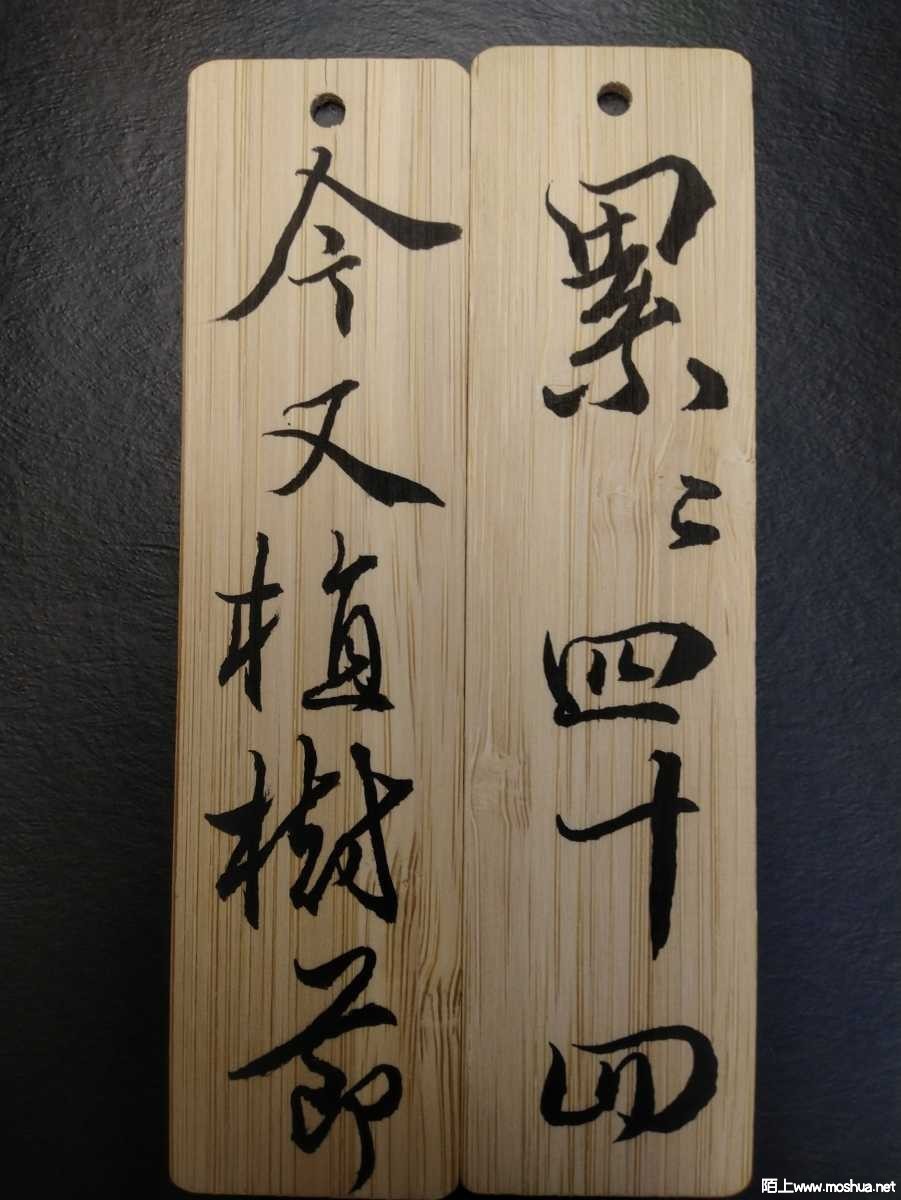 累〻四十四
今又植樹節
陌上www.moshua.net